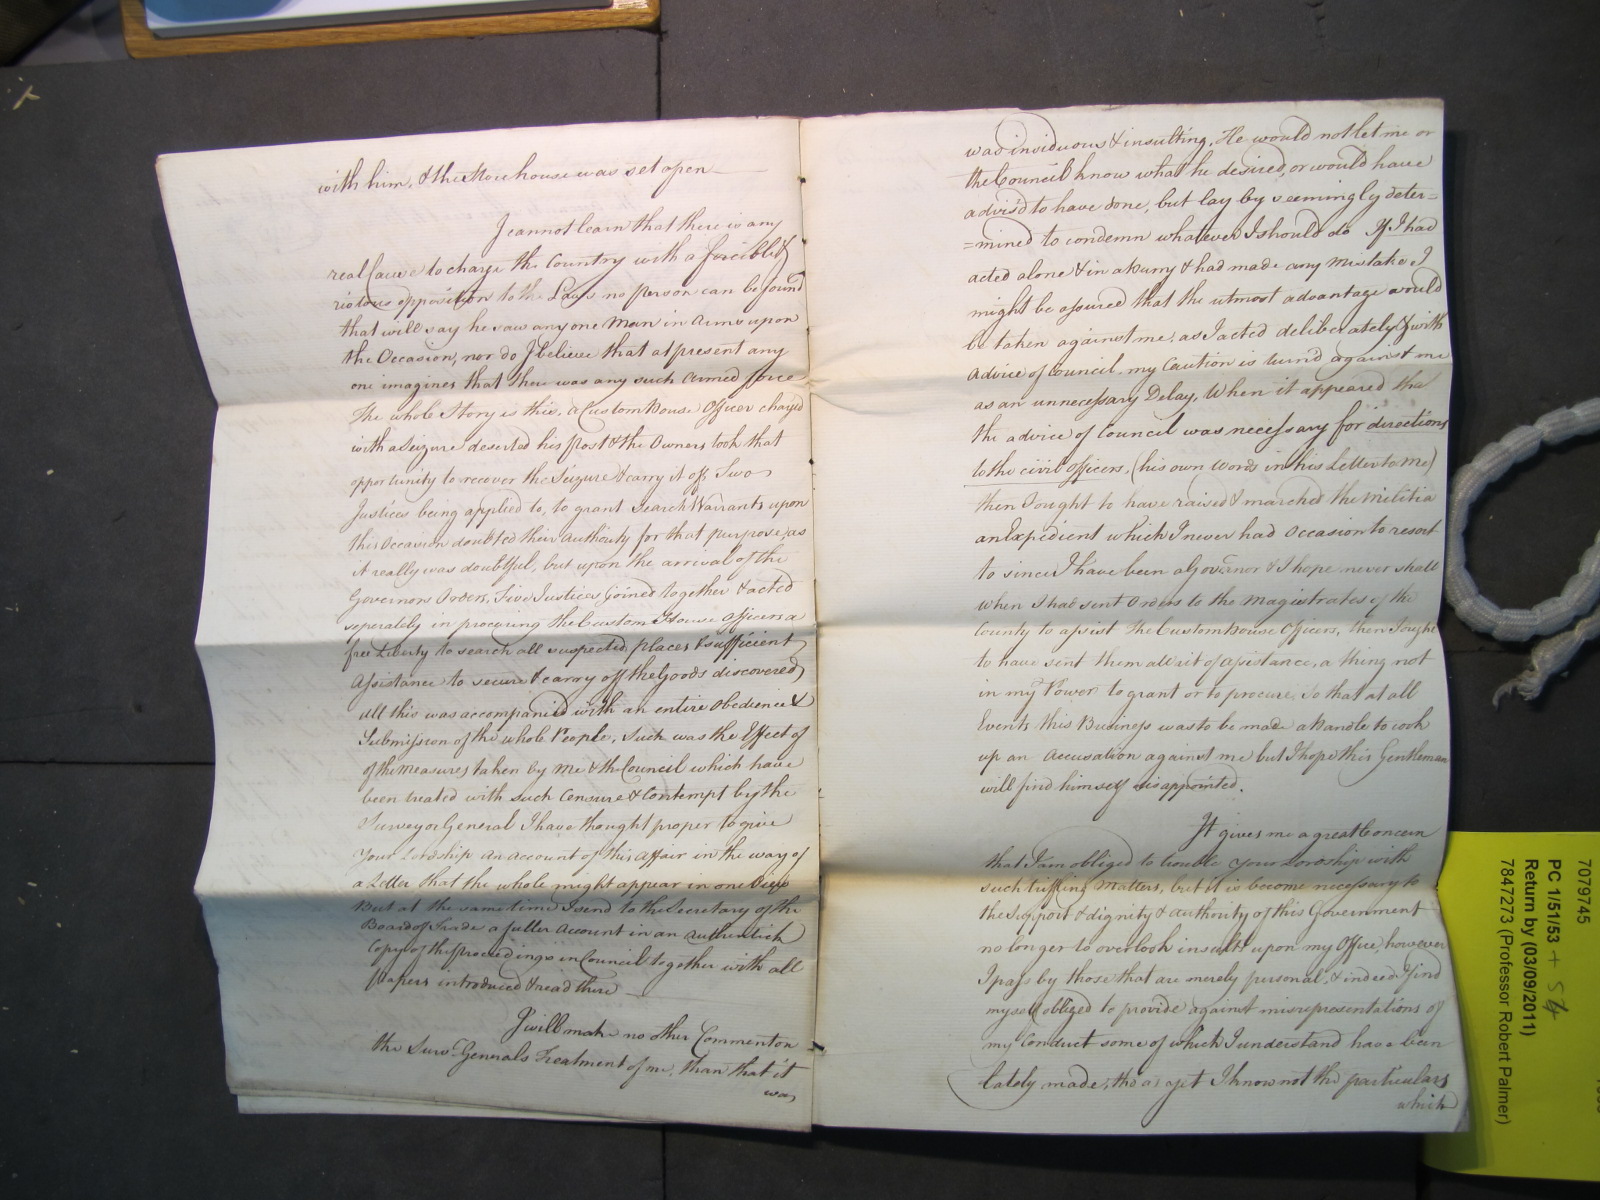 with him, & the Store house was set open
I cannot learn that there is any
real Cause to charge the Country with a forcible &
riotous opposition to the Laws no person can be found
that will say he saw any one Man in Arms upon
the Occasion, nor do I believe that at present any
one imagines that there was any such Armed force
The whole Story is this, a Custom House Officer charg'd
with a Seizure deserted his Post & the Owners took that
opportunity to recover the Seizure & carry it off, Two
Justices being applied to, to grant Search Warrants upon
this Occasion doubted their Authority for that purpose, as
it really was doubtful, but upon the arrival of the
Governors Orders, Five Justices joined together & acted
seperately in procuring the Custom House Officers a
free Liberty to search all suspected places & sufficient
Assistance to secure & carry off the Goods discovered
all this was accompanied with an entire Obedience &
Submission of the whole People, Such was the Effect of
of the Measures taken by Me & the Council which have
been treated with such Censure & Contempt by the
Surveyor General I have thought proper to give
Your Lordship an account of this Affair in the way of
a Letter that the whole might appear in one View
But at the same time I send to the Secretary of the
Board of Trade a fuller Account in an Authentick
Copy of the proceedings in Council together with all
Papers introduced & read there
I will make no other Comment on
the Survr. Generals Treatment of me, than that it
was
was insiduous & insulting, He would not let me or
the Council know what he desired, or would have
advis'd to have done, but lay by seemingly deter=
=mined to condemn whatever I should do If I had
acted alone & in a hurry & had made any Mistake I
might be assured that the utmost advantage would
be taken against me, as I acted deliberately & with
Advice of Council, my Caution is turnd against me
as an unnecessary Delay, When it appeared tha
the advice of Council was necessary for directions
to the civil Officers, (his own Words in his Letter to Me)
then I ought to have raised & marched the Militia
an Expedient which I never had Occasion to resort
to since I have been a Governor & I hope never shall
When I had sent Orders to the Magistrates of the
County to assist the Custom House Officers, then I ought
to have sent them a Writ of assistance, a thing not
in my Power to grant or to procure, So that at all
Events this Business was to be made a Handle to work
up an Accusation against me but I hope this Gentleman
will find himself disappointed.
It gives me a great Concern
that I am obliged to trouble Your Lordship with
such trifling Matters, but it is become necessary to
the Support & dignity & authority of this Government
no longer to overlook insults upon my Office, however
I pass by those that are merely personal, & indeed I find
myself obliged to provide against misrepresentations of
my Conduct some of which I understand have been
lately made, tho as yet I know not the particulars
which
7079745
PC 1/51/53 + 54
Return by (03/09/2011)
7847273 (Professor Robert Palmer)